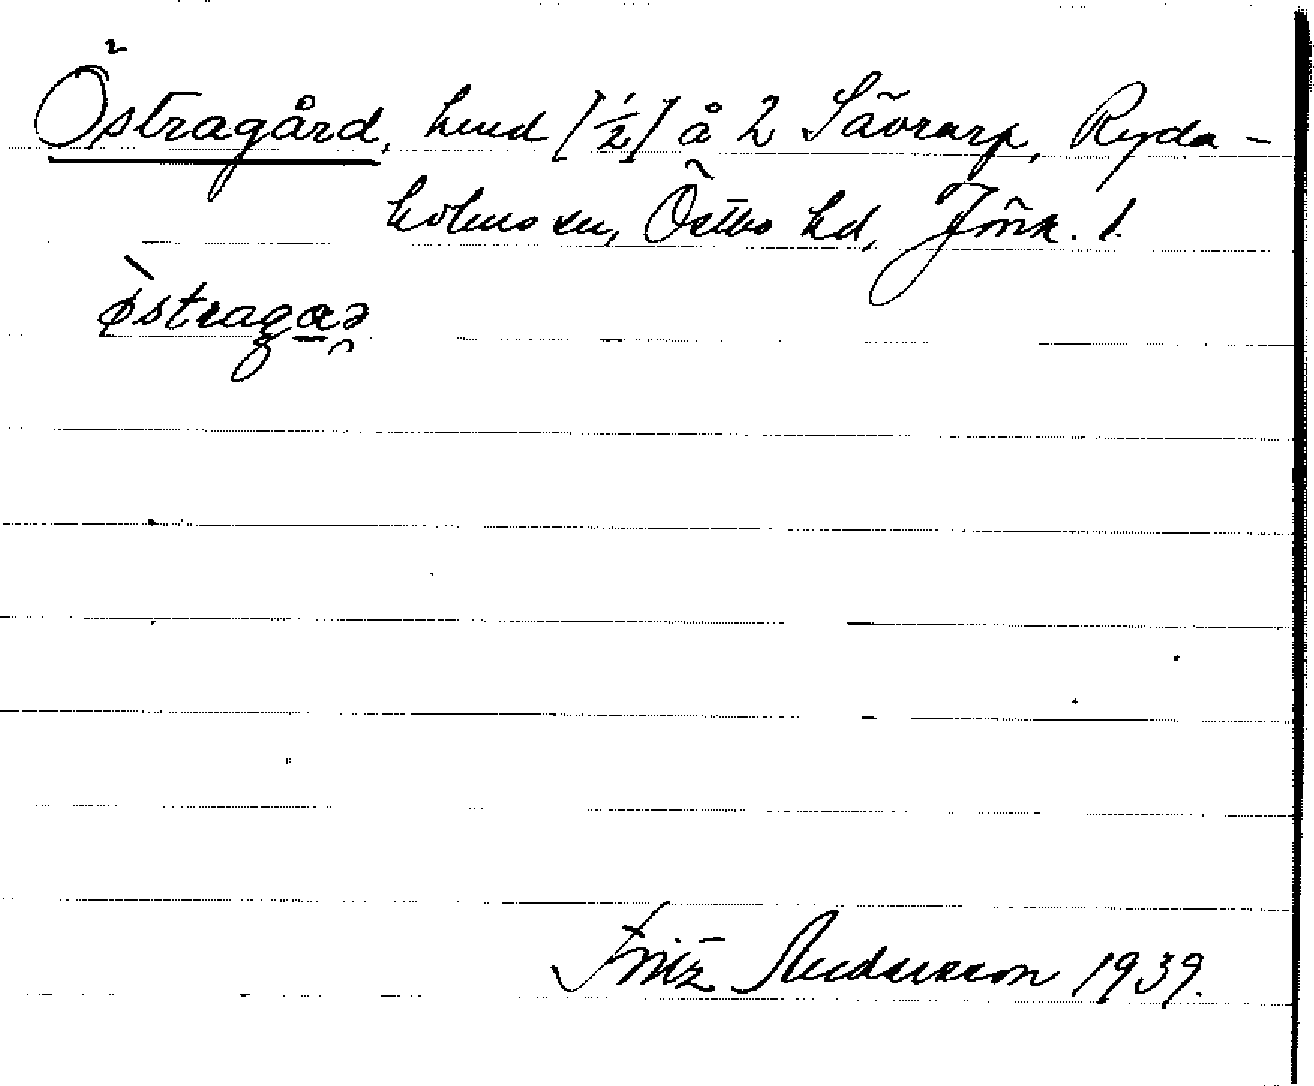 Östragård, hmd [1/2] å 2 Sävrarp, Ryda-
holms sn, Östbo hd, Jönk. l.
östragaə
Fritz Andersson 1939.